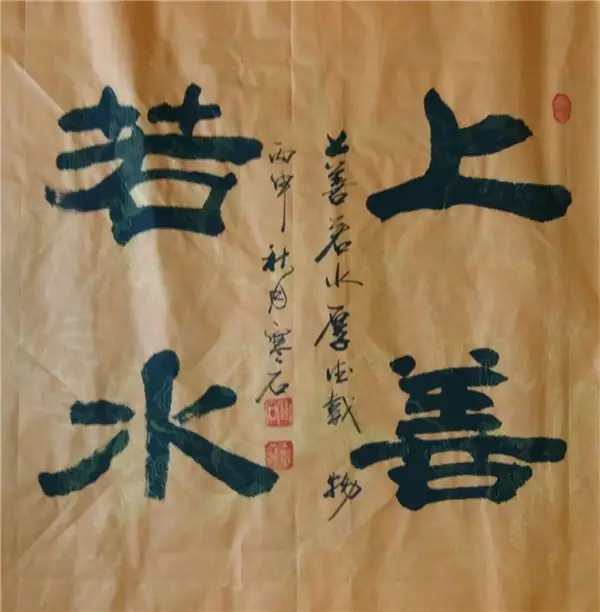 上善
若水
上善若水厚德载物
丙申秋月寒石